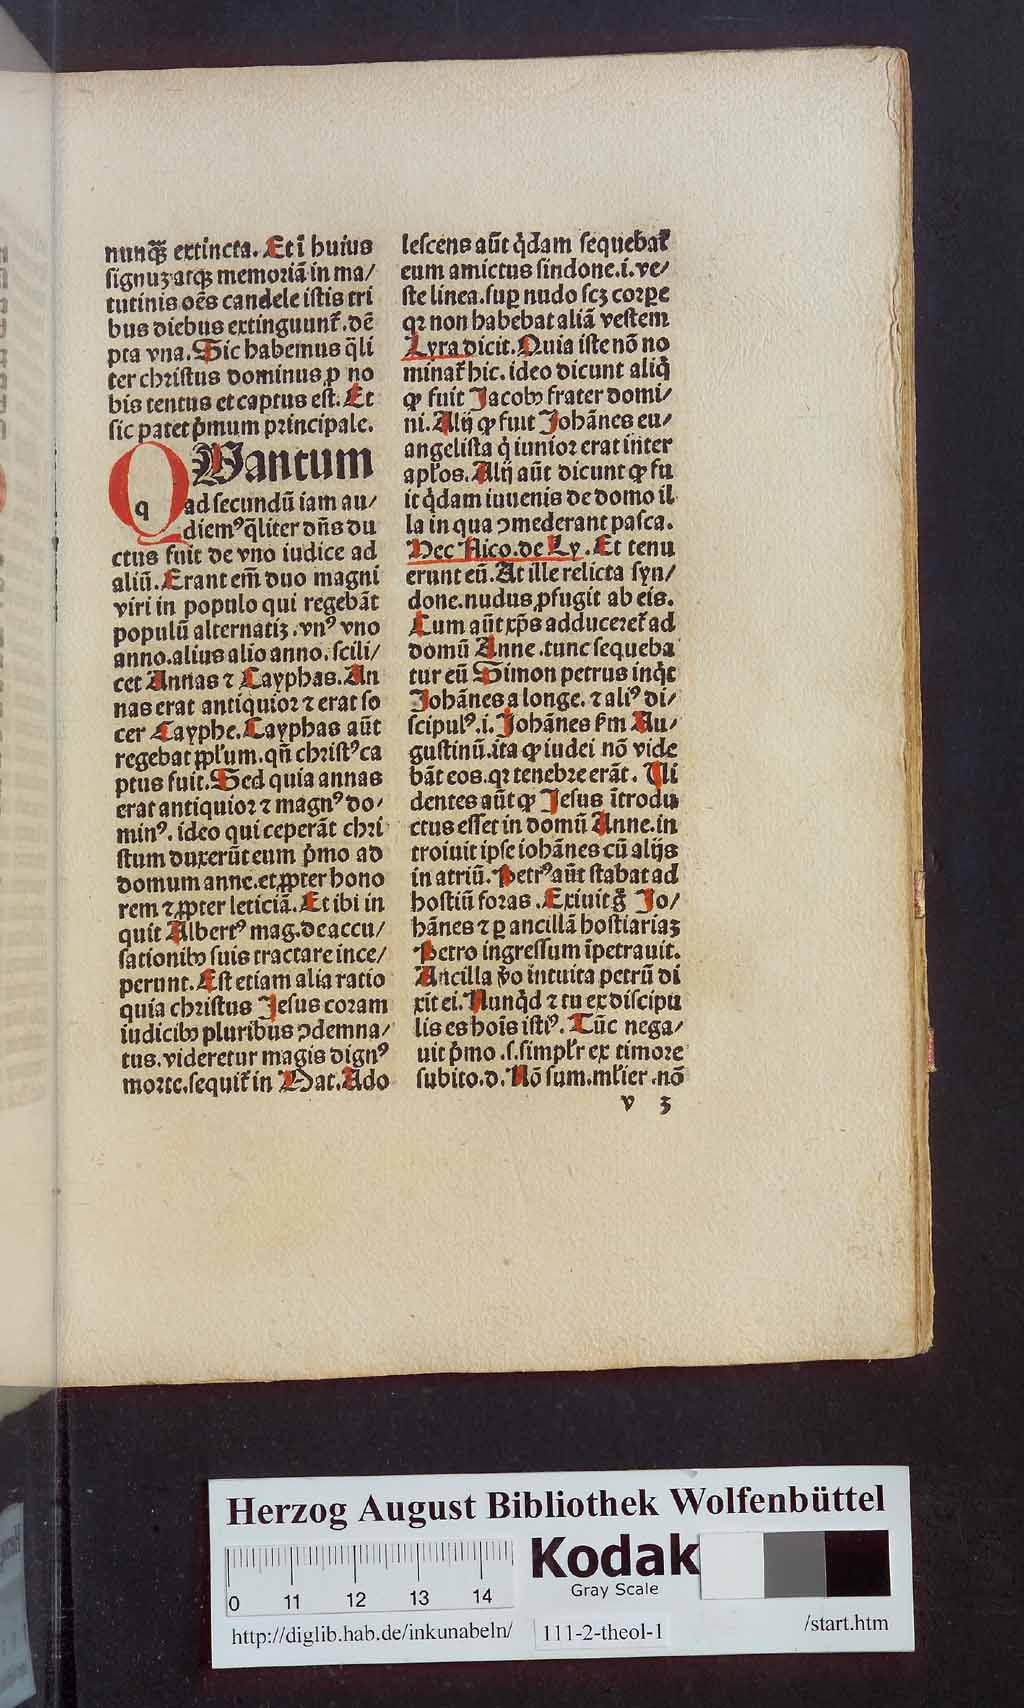 nunqᷓꝫ extincta. Et ī huius
signuꝫ atqꝫ memoriā in ma/
tutinis oēs candele istis tri
bus diebus extinguunt᷑. dē
pta vna. Sic habemus q̄li
ter christus dominus ꝓ no
bis tentus et captus est. Et
sic patet p̄mum principale.
QUantum
q ad secundū iam au/
diemꝰ q̄liter dn̄s du
ctus fuit de vno iudice ad
aliū. Erant em̄ duo magni
viri in populo qui regebāt
populū alternatiꝫ. vnꝰ vno
anno. alius alio anno. scili/
cet Annas ⁊ Cayphas. An
nas erat antiquior ⁊ erat so
cer Cayphe. Cayphas aūt
regebat pp̄lum. qn̄ christꝰ ca
ptus fuit. Sed quia annas
erat antiquior ⁊ magnꝰ do/
minꝰ. ideo qui ceperāt chri
stum duxerūt eum p̄mo ad
domum anne. et ꝓpter hono
rem ⁊ ꝓpter leticiā. Et ibi in
quit Albertꝰ mag. de accu/
sationibꝰ suis tractare ince/
perunt. Est etiam alia ratio
quia christus Jesus coram
iudicibꝰ pluribus ꝯdemna/
tus. videretur magis dignꝰ
morte. sequit᷑ in Mat. Ado
lescens aūt q̇dam sequebat᷑
eum amictus sindone. i. ve/
ste linea. sup̱ nudo scꝫ corp̱e
qꝛ non habebat aliā vestem
Lyra dicit. Quia iste nō no
minat᷑ hic. ideo dicunt aliq̇
ꝙ fuit Jacobꝰ frater domi/
ni. Alij ꝙ fuit Johānes eu/
angelista q̇ iunior erat inter
apłos. Alij aūt dicunt ꝙ fu
it q̇dam iuuenis de domo il
la in qua ꝯmederant pasca.
Hec Nico. de Ly. Et tenu
erunt eū. At ille relicta syn/
done. nudus ꝓfugit ab eis.
Cum aūt xp̄s adduceret᷑ ad
domū Anne. tunc sequeba
tur eū Simon petrus inq̇t
Johānes a longe. ⁊ aliꝰ di/
scipulꝰ. i. Johānes ẜm Au/
gustinū. ita ꝙ iudei nō vide
bāt eos. qꝛ tenebre erāt. Ui
dentes aūt ꝙ Jesus ītrodu
ctus esset in domū Anne. in
troiuit ipse iohānes cū alijs
in atriū. Petrꝰ aūt stabat ad
hostiū foras. Exiuit g̊ Jo/
hānes ⁊ ꝑ ancillā hostiariaꝫ
Petro ingressum īpetrauit.
Ancilla v̊o intuita petrū di
xit ei. Nunq̇d ⁊ tu ex discipu
lis es hoīs istiꝰ. Tūc nega/
uit p̄mo. s. simplr̄ ex timore
subito. d. Nō sum. młier. nō
v 3
Herzog August Bibliothek Wolfenbüttel
0 11 12 13 14
Kodak
Gray Scale
http://diglib.hab.de/inkunabeln/ 111-2-theol-1 /start.htm